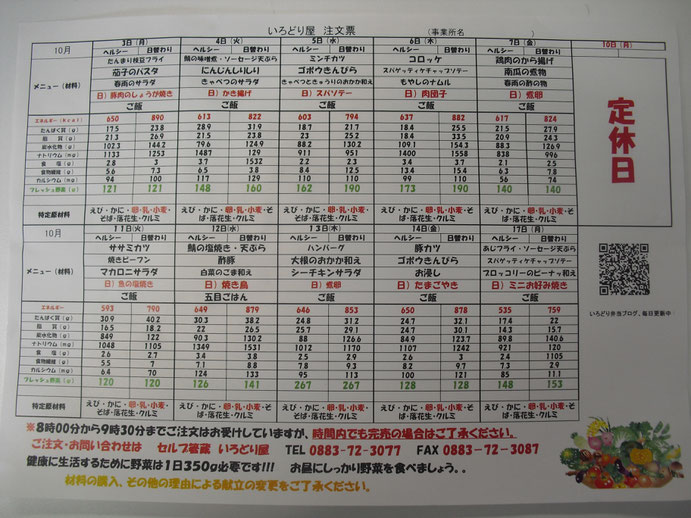 いろどり屋 注文票 （事業所名 ）
10月 3日（月） 4日（火） 5日（水） 6日（木） 7日（金） 10日（月）
ヘルシー 日替わり ヘルシー 日替わり ヘルシー 日替わり ヘルシー 日替わり ヘルシー 日替わり
メニュー（材料）
たんまり枝豆フライ 鯖の味噌煮・ソーセージ天ぷら ミンチカツ コロッケ 鶏肉のから揚げ
茄子のパスタ にんじんしりしり ゴボウきんぴら スパゲッティケチャップソテー 南瓜の煮物
春雨のサラダ きゃべつのサラダ きゃべつときゅうりのおかか和え もやしのナムル 春雨の酢の物
日）豚肉のしょうが焼き 日）かき揚げ 日）スパソテー 日）肉団子 日）煮卵
ご飯 ご飯 ご飯 ご飯 ご飯
定休日
エネルギー（Kcal） 650 890 613 822 603 794 637 882 617 824
たんぱく質（g） 17.5 23.8 28.9 31.9 18.7 21.7 18.4 25.5 21.5 27.9
脂 質（g） 21.3 26.9 21.5 23.8 23 25.2 18.4 33.5 20.9 24.3
炭水化物（g） 102.3 144.2 79.6 124.9 88.2 130.2 109.1 154.3 82.9 126.3
ナトリウム（mg） 1133 1253 1487 929 911 951 1400 1558 838 996
食 塩（g） 2.8 3 3.7 1532 2.2 2.3 3.4 3.7 2.1 2.5
食物繊維（g） 5.6 7.3 6.5 3.8 8.4 12.5 13.4 15.4 6.3 7.8
カルシウム（mg） 94 100 117 129 110 110 90 99 56 74
フレッシュ野菜（g） 121 121 148 160 162 190 173 190 140 140
特定原材料 えび・かに・卵・乳・小麦・そば・落花生・クルミ えび・かに・卵・乳・小麦・そば・落花生・クルミ えび・かに・卵・乳・小麦・そば・落花生・クルミ えび・かに・卵・乳・小麦・そば・落花生・クルミ えび・かに・卵・乳・小麦・そば・落花生・クルミ
10月 11日(火) 12日(水) 13日(木) 14日(金) 17日(月)
ヘルシー 日替わり ヘルシー 日替わり ヘルシー 日替わり ヘルシー 日替わり ヘルシー 日替わり
メニュー（材料）
ササミカツ 鯖の塩焼き・天ぷら ハンバーグ 豚カツ あじフライ・ソーセージ天ぷら
焼きビーフン 酢豚 大根のおかか和え ゴボウきんぴら スパゲッティケチャップソテー
マカロニサラダ 白菜のごま和え シーチキンサラダ お浸し ブロッコリーのピーナッツ和え
日）魚の塩焼き 日）焼き鳥 日）煮卵 日）たまごやき 日）ミニお好み焼き
ご飯 五目ごはん ご飯 ご飯 ご飯
いろどり弁当ブログ、毎日更新中
エネルギー 593 790 649 879 646 853 650 878 535 759
たんぱく質（g） 30.9 40.2 30.3 38.2 24.8 31.2 24.7 32.1 17.4 22
脂 質（g） 16.5 18.2 22 26.5 25.7 29.1 24.7 30.1 14.3 15.7
炭水化物（g） 849 122 90.3 130.2 88 126.6 83.9 124.7 89.8 140.6
ナトリウム（mg） 1048 1105 1349 1531 1012 1170 1107 1242 921 120
食 塩（g） 2.6 2.7 3.4 3.8 2.5 2.9 2.6 3 2.4 1105
食物繊維（g） 5.5 7.1 7 8.8 7.8 9.3 6.3 7.7 85 2.9
カルシウム（mg） 6.4 70 124 133 95 113 100 121 85 111.1
フレッシュ野菜（g） 120 120 126 141 267 267 128 128 148 153
特定原材料 えび・かに・卵・乳・小麦・そば・落花生・クルミ えび・かに・卵・乳・小麦・そば・落花生・クルミ えび・かに・卵・乳・小麦・そば・落花生・クルミ えび・かに・卵・乳・小麦・そば・落花生・クルミ えび・かに・卵・乳・小麦・そば・落花生・クルミ
※8時00分から9時30分までご注文はお受けしていますが、時間内でも完売の場合はご了承ください。
ご注文・お問い合わせは セルプ箸蔵 いろどり屋 TEL 0883-72-3077 FAX 0883-72-3087
健康に生活するために野菜は1日350g必要です!!! お昼にしっかり野菜を食べましょう。.
材料の購入、その他の理由による献立の変更をご了承ください。